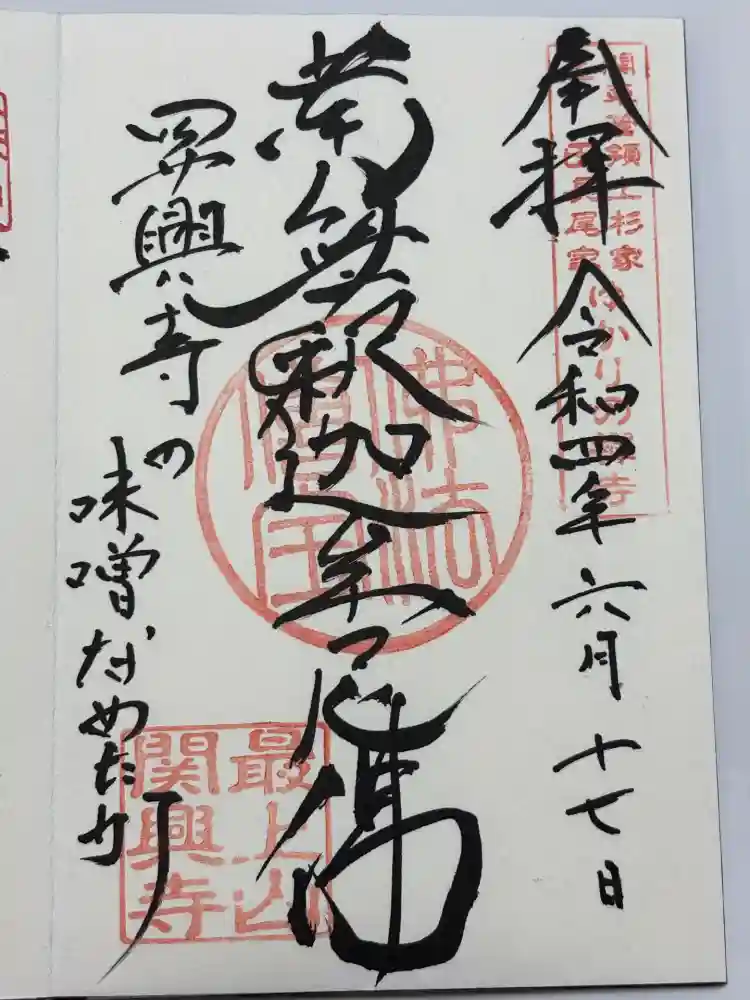 奉拝 令和四年六月十七日
関東管領上杉家
長尾家ゆかりの禅寺
南無釈迦牟尼佛
佛法
僧宝
関興寺の
味噌なめたか
最上山
関興寺